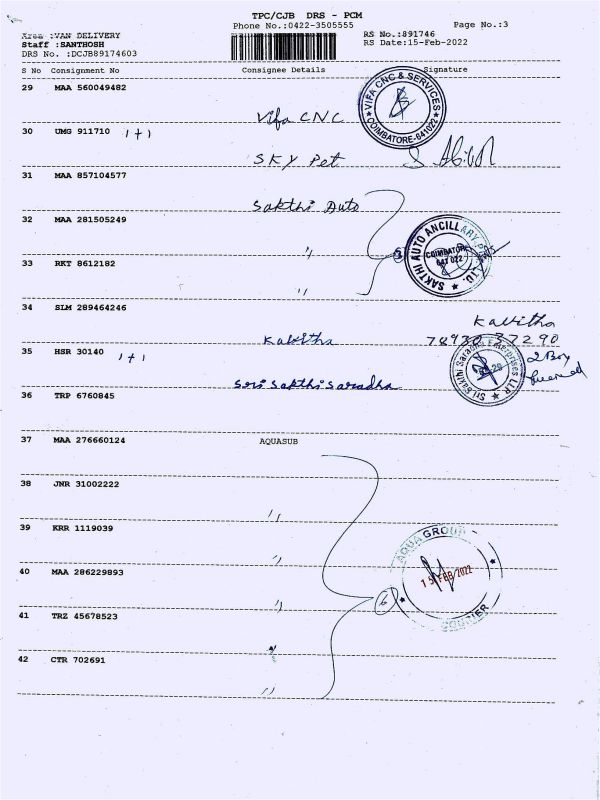 TPC/CJB DRS - PCM
Phone No.:0422-3505555 Page No.:3
Area :VAN DELIVERY RS No.:891746
Staff :SANTHOSH RS Date:15-Feb-2022
DRS No. :DCJB89174603
S No Consignment No Consignee Details Signature
29 MAA 560049482
Vifa CNC
VIFA CNC & SERVICES
COIMBATORE-641022
30 UMG 911710 1+1
SKY Pet
31 MAA 857104577
Sakthi Auto
32 MAA 281505249
"
SAKTHI AUTO ANCILLARY
COIMBATORE
641 022
LTD.
33 RKT 8612182
"
34 SLM 289464246
Kavitha Kavitha
35 HSR 30140 1+1
Sri Sakthi Saradha
Sri Sakthi Saradha Enterprises LLP
2 Box
36 TRP 6760845
37 MAA 276660124 AQUASUB
38 JNR 31002222
"
39 KRR 1119039
"
AQUA GROUP
15 FEB 2022
COURIER
40 MAA 286229893
"
6
41 TRZ 45678523
"
42 CTR 702691
"